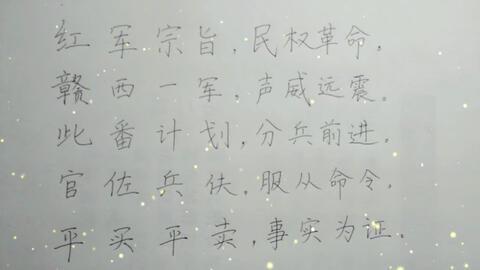 红军宗旨，民权革命。
赣西一军，声威远震。
此番计划，分兵前进。
官佐兵伕，服从命令。
平买平卖，事实为证。